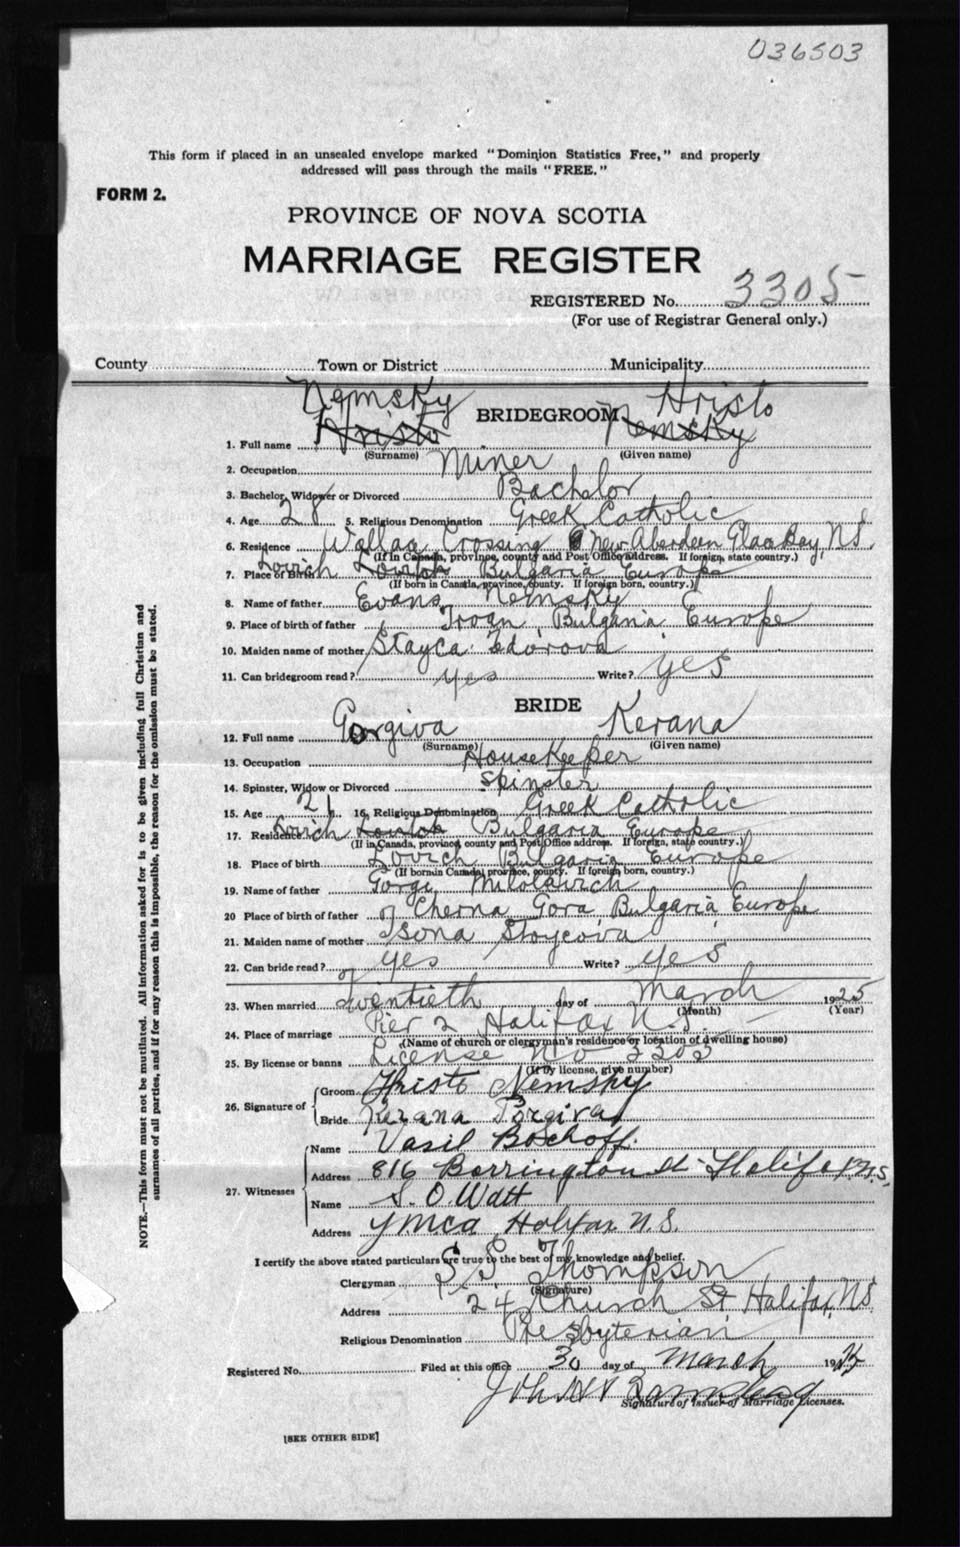 036503
This form if placed in an unsealed envelope marked "Dominion Statistics Free," and properly
addressed will pass through the mails "FREE."
FORM 2.
PROVINCE OF NOVA SCOTIA
MARRIAGE REGISTER
REGISTERED No. 3305
(For use of Registrar General only.)
County Town or District Municipality
Nemsky Hristo
BRIDEGROOM
1. Full name Hristo Nemsky
(Surname) (Given name)
2. Occupation Miner
3. Bachelor, Widower or Divorced Bachelor
4. Age 28 5. Religious Denomination Greek Catholic
6. Residence Wallace Crossing New Aberdeen Glace Bay, N.S.
(If in Canada, province, county and Post Office address. If foreign, state country.)
7. Place of Birth Lovich Bulgaria Europe
(If born in Canada, province, county. If foreign born, country.)
8. Name of father Evans Nemsky
9. Place of birth of father Troan, Bulgaria, Europe
10. Maiden name of mother Stayca Fdorova
11. Can bridegroom read? yes Write? yes
BRIDE
12. Full name Gorgiva Kerana
(Surname) (Given name)
13. Occupation HouseKeeper
14. Spinster, Widow or Divorced Spinster
15. Age 21 16. Religious Denomination Greek Catholic
17. Residence Lovich Bulgaria Europe
(If in Canada, province, county and Post Office address. If foreign, state country.)
18. Place of birth Lovich Bulgaria Europe
(If born in Canada, province, county. If foreign born, country.)
19. Name of father Gorgi Milolavich
20 Place of birth of father Cherna Gora, Bulgaria, Europe
21. Maiden name of mother Tsona Stoycova
22. Can bride read? yes Write? yes
23. When married Twentieth day of March 1925
(Month) (Year)
24. Place of marriage Pier 2 Halifax N.S.
(Name of church or clergyman's residence or location of dwelling house)
25. By license or banns License No 2205
(If by license, give number)
26. Signature of Groom Hristo Nemsky
Bride Kerana Gorgiva
27. Witnesses Name Vasil Bochoff.
Address 816 Barrington St Halifax N.S.
Name S. O. Watt
Address YMCA Halifax N.S.
I certify the above stated particulars are true to the best of my knowledge and belief.
Clergyman S. S. Thompson
(Signature)
Address 24 Church St Halifax, N.S.
Religious Denomination Presbyterian
Registered No. Filed at this office 30 day of March 1925
John
Signature of Issuer of Marriage Licenses.
[SEE OTHER SIDE]
NOTE.—This form must not be mutilated. All information asked for is to be given including full Christian and
surnames of all parties, and if for any reason this is impossible, the reason for the omission must be stated.